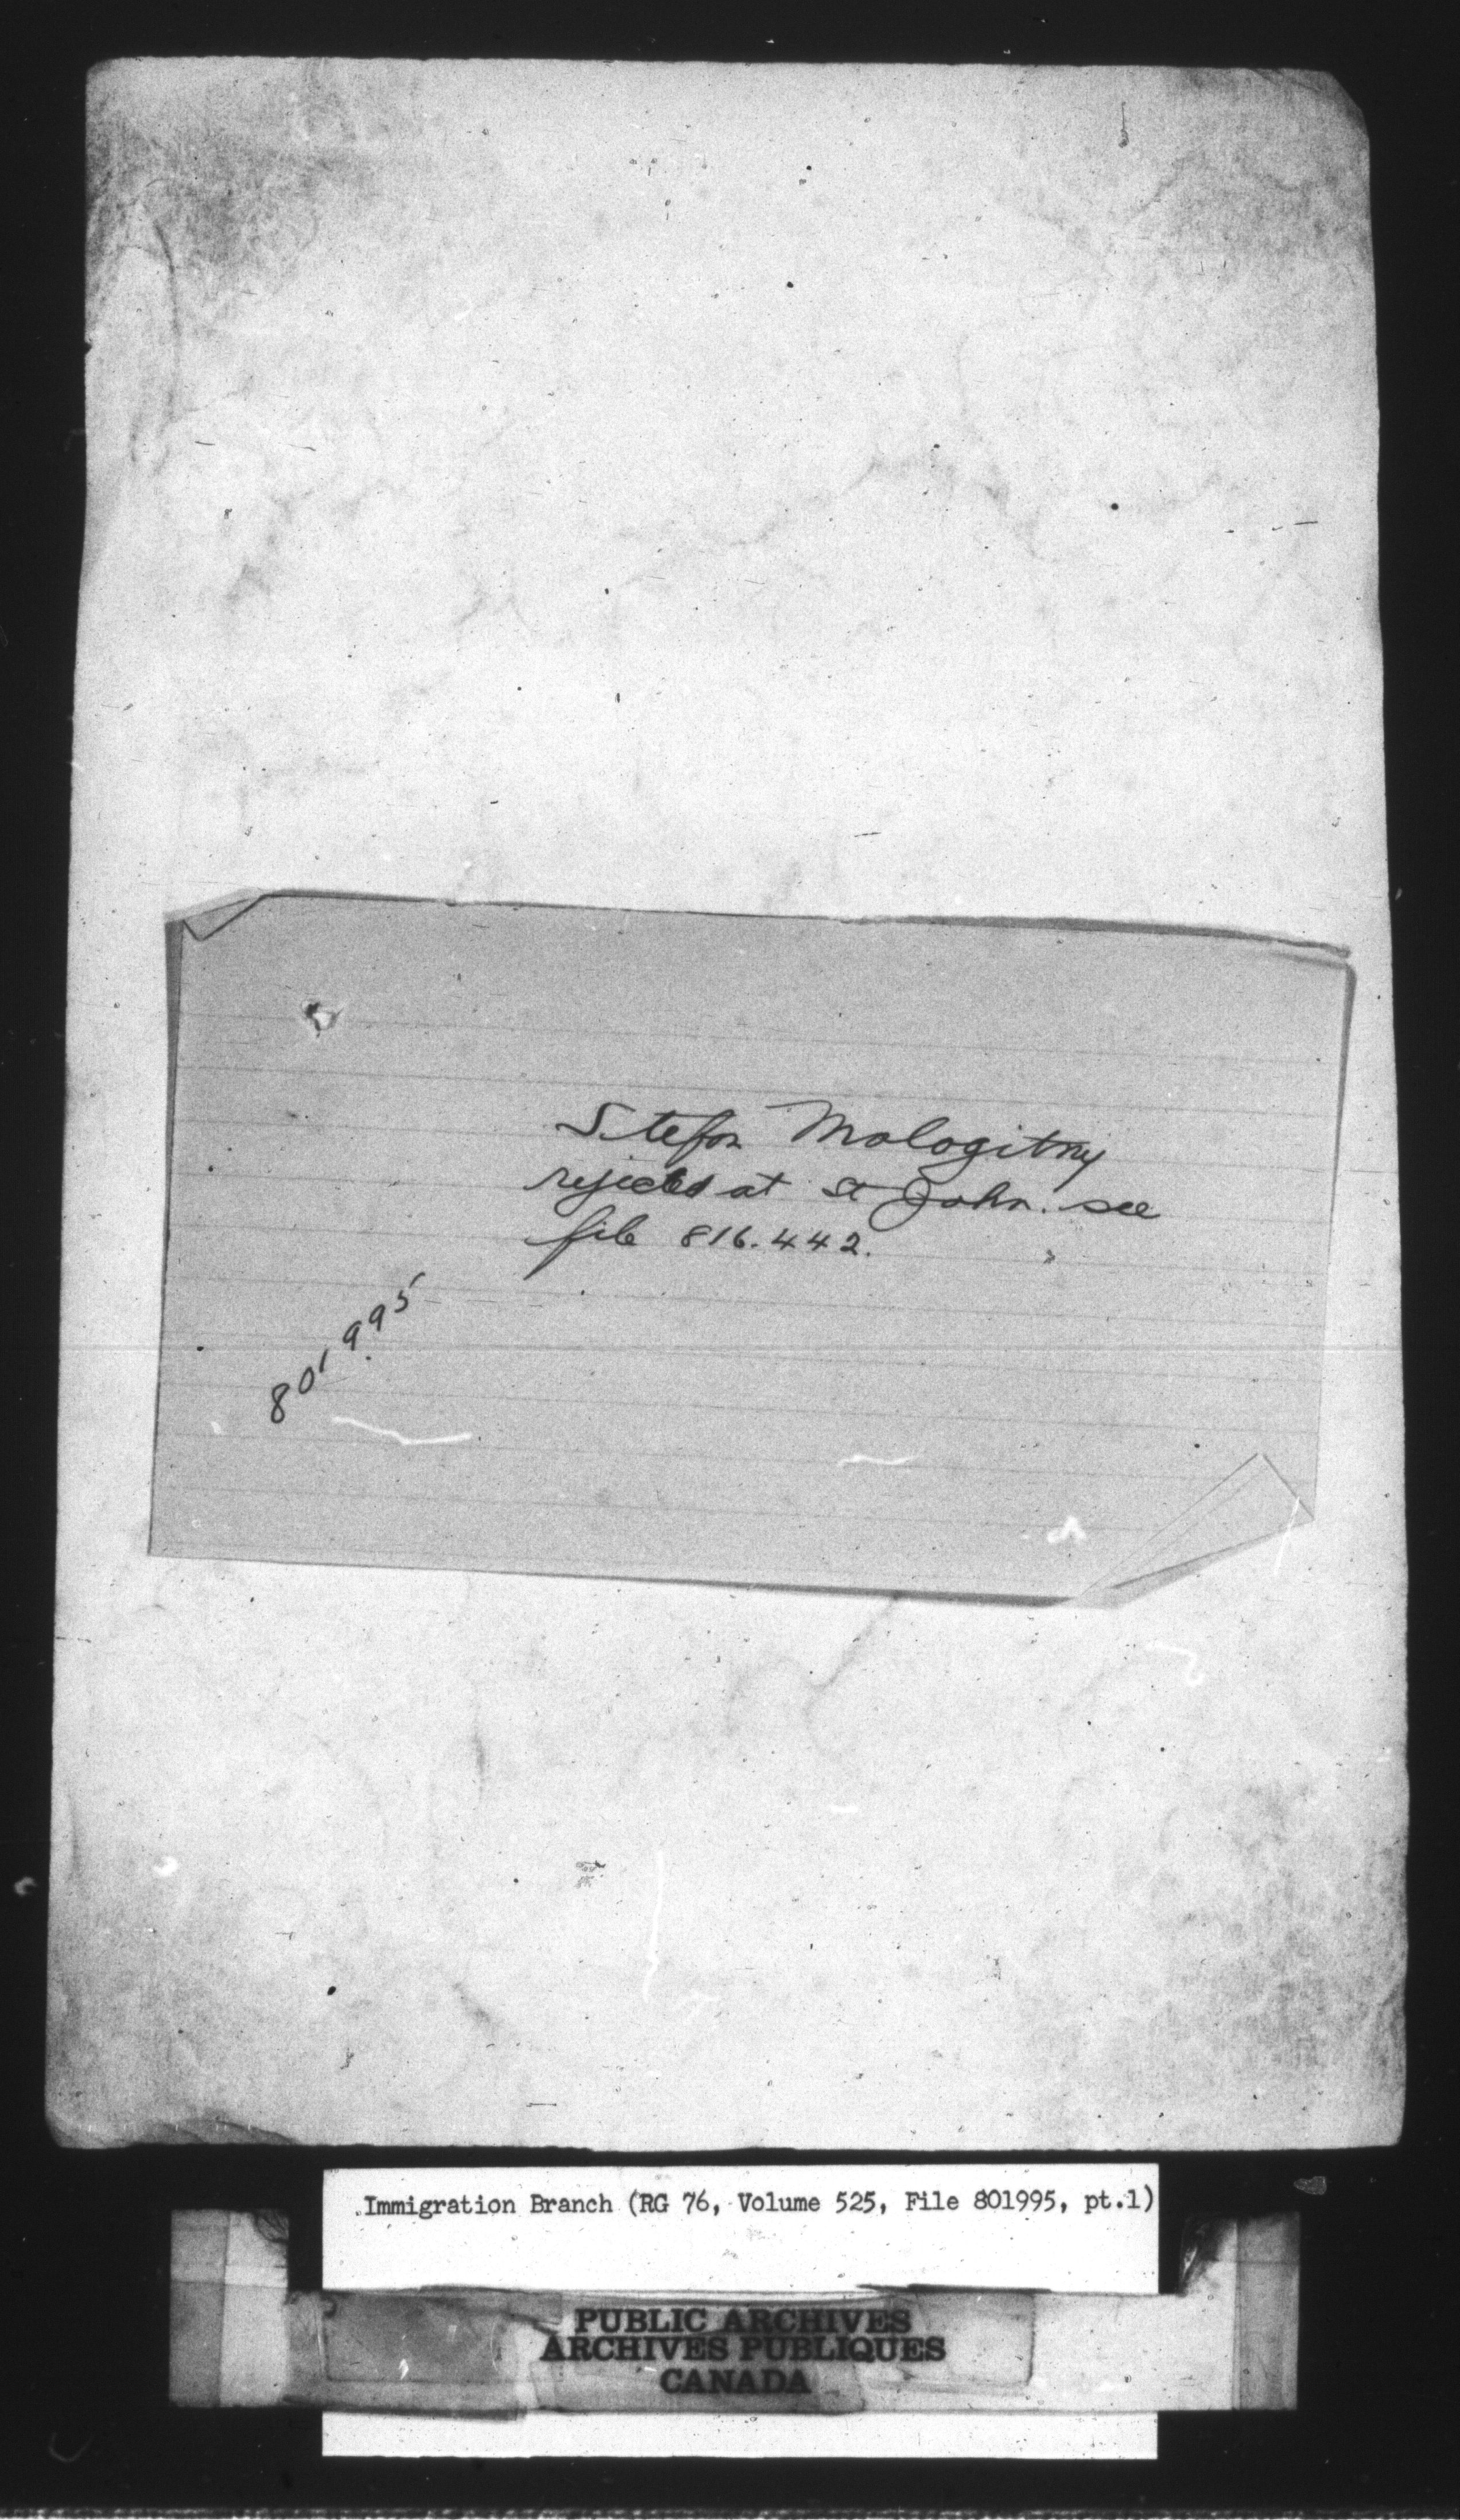 Stefan Mologitny
rejected at St John. see
file 816.442.
801995
Immigration Branch (RG 76, Volume 525, File 801995, pt.1)
PUBLIC ARCHIVES
ARCHIVES PUBLIQUES
CANADA